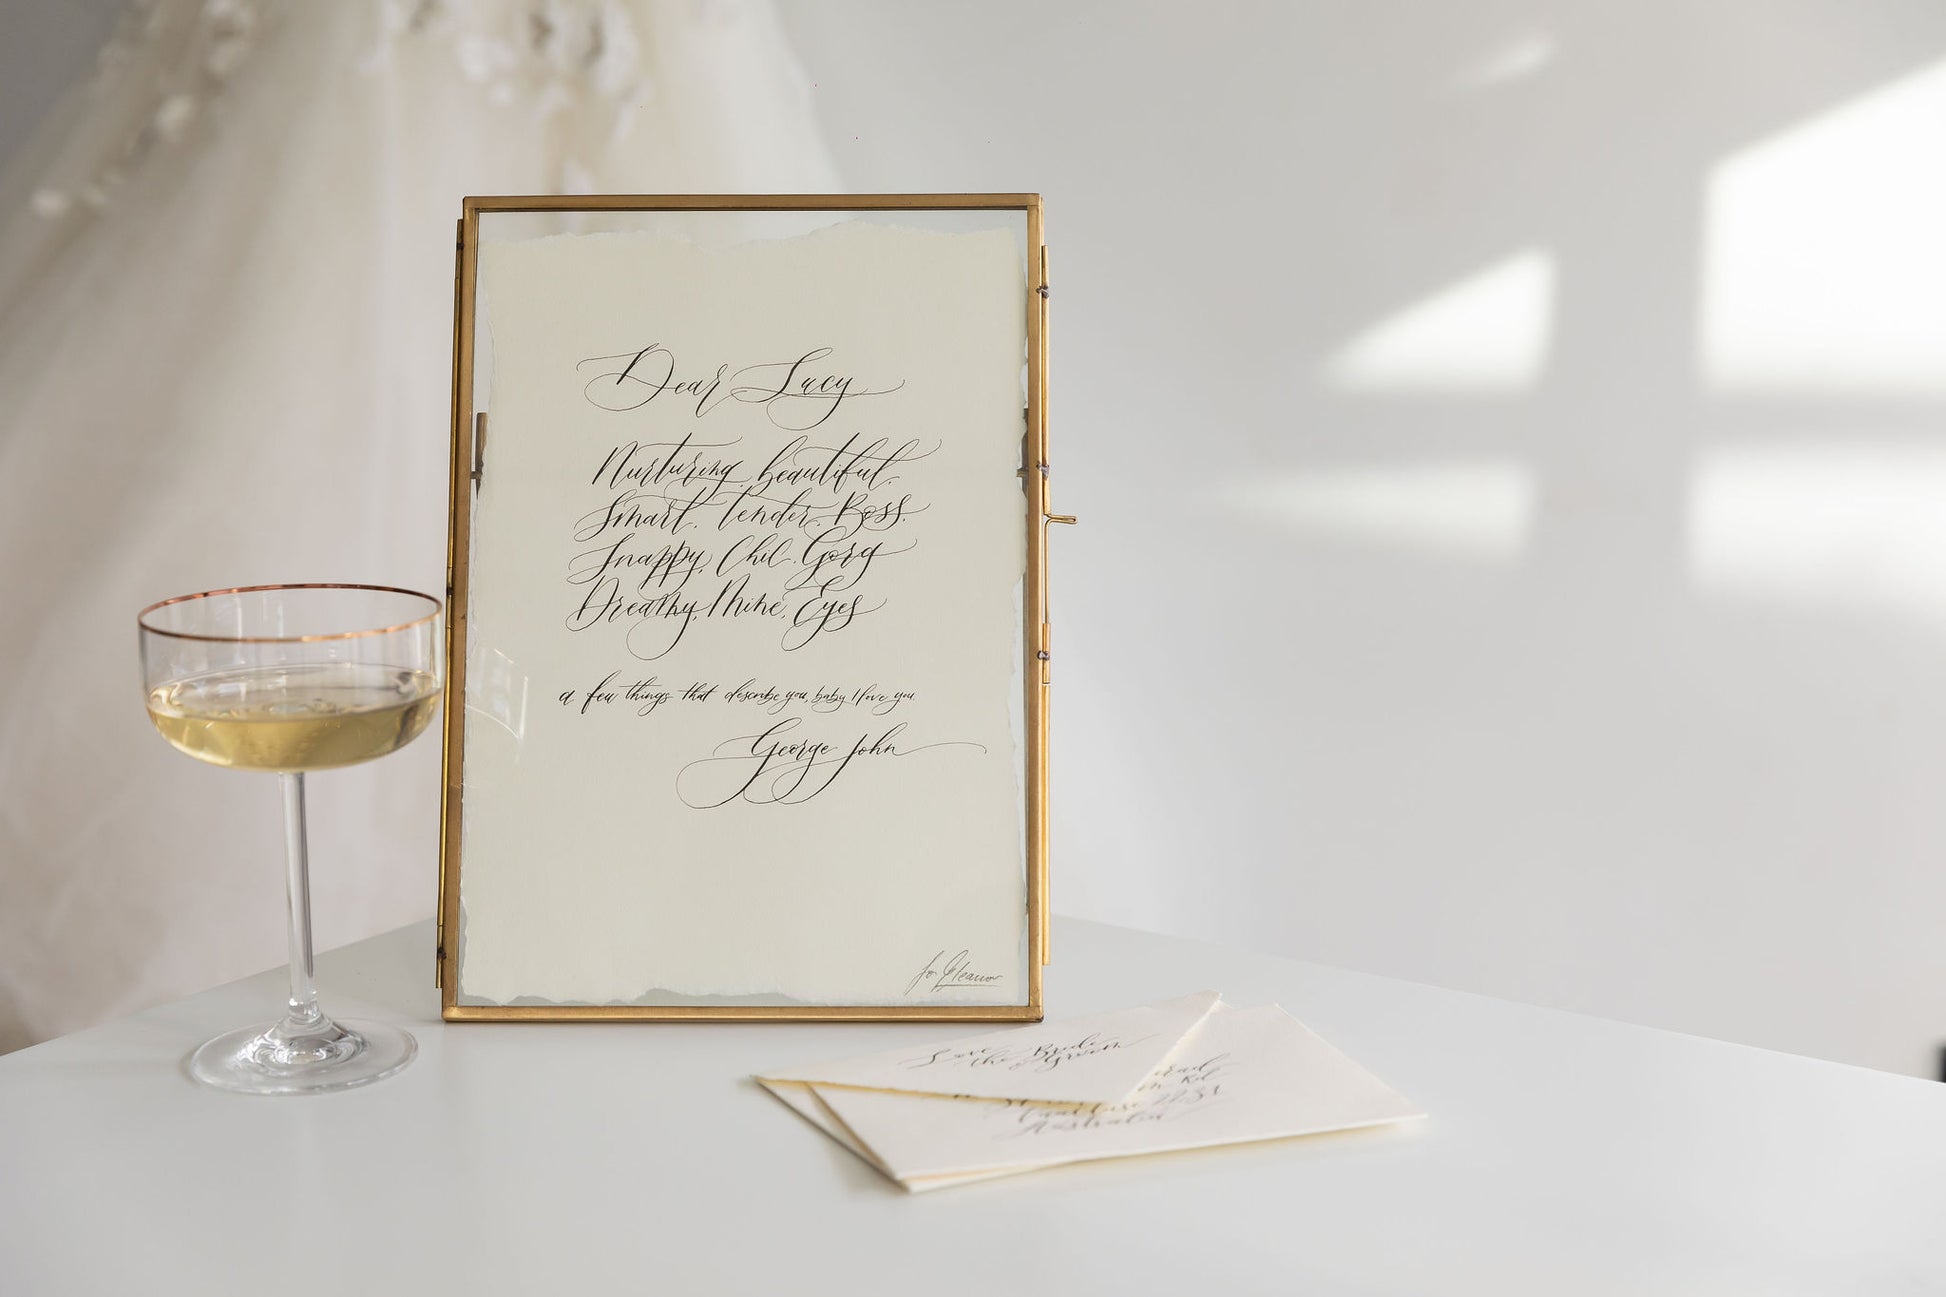 Dear Lucy
Nurturing, beautiful,
Smart, Tender, Boss,
Snappy, Chil, Gorg
Dreamy, Mine, Eyes
a few things that describe you, baby I love you
George John
for Eleanor
Love
the Bride
& Groom
Rd
Australia